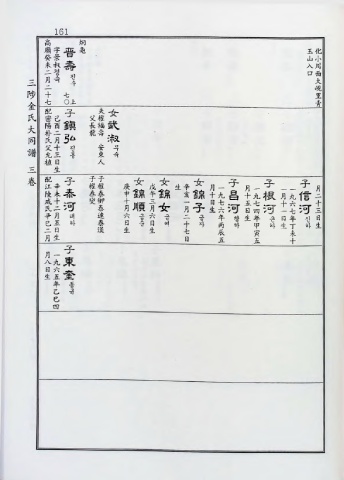 161
三陟金氏大同譜 三卷
化小周面大境里青
玉山入口
炯兎
晋壽 진수 七〇上
字景叔 정숙
高麗癸未二月二十七
女武淑 무숙
夫權福壽 安東人
父長龍
子鎭弘 진홍
己酉二月十三日生
配密陽朴氏父允植
子權泰卿泰連泰漢
子權泰燮
月二十三日生
子信河 신하
一九六七年丁未十
一月十一日生
子根河 근하
一九七四年甲寅五
月十五日生
子昌河 창하
一九七六年丙辰五
月十日生
女錦子 금자
辛亥一月二十七日
生
女錦女 금녀
戊午三月六日生
女錦順 금순
庚申十月六日生
子泰河 태하
辛未十二月五日生
配江陵咸氏辛巳二月
子東奎 동규
一九六五年乙巳四
月八日生